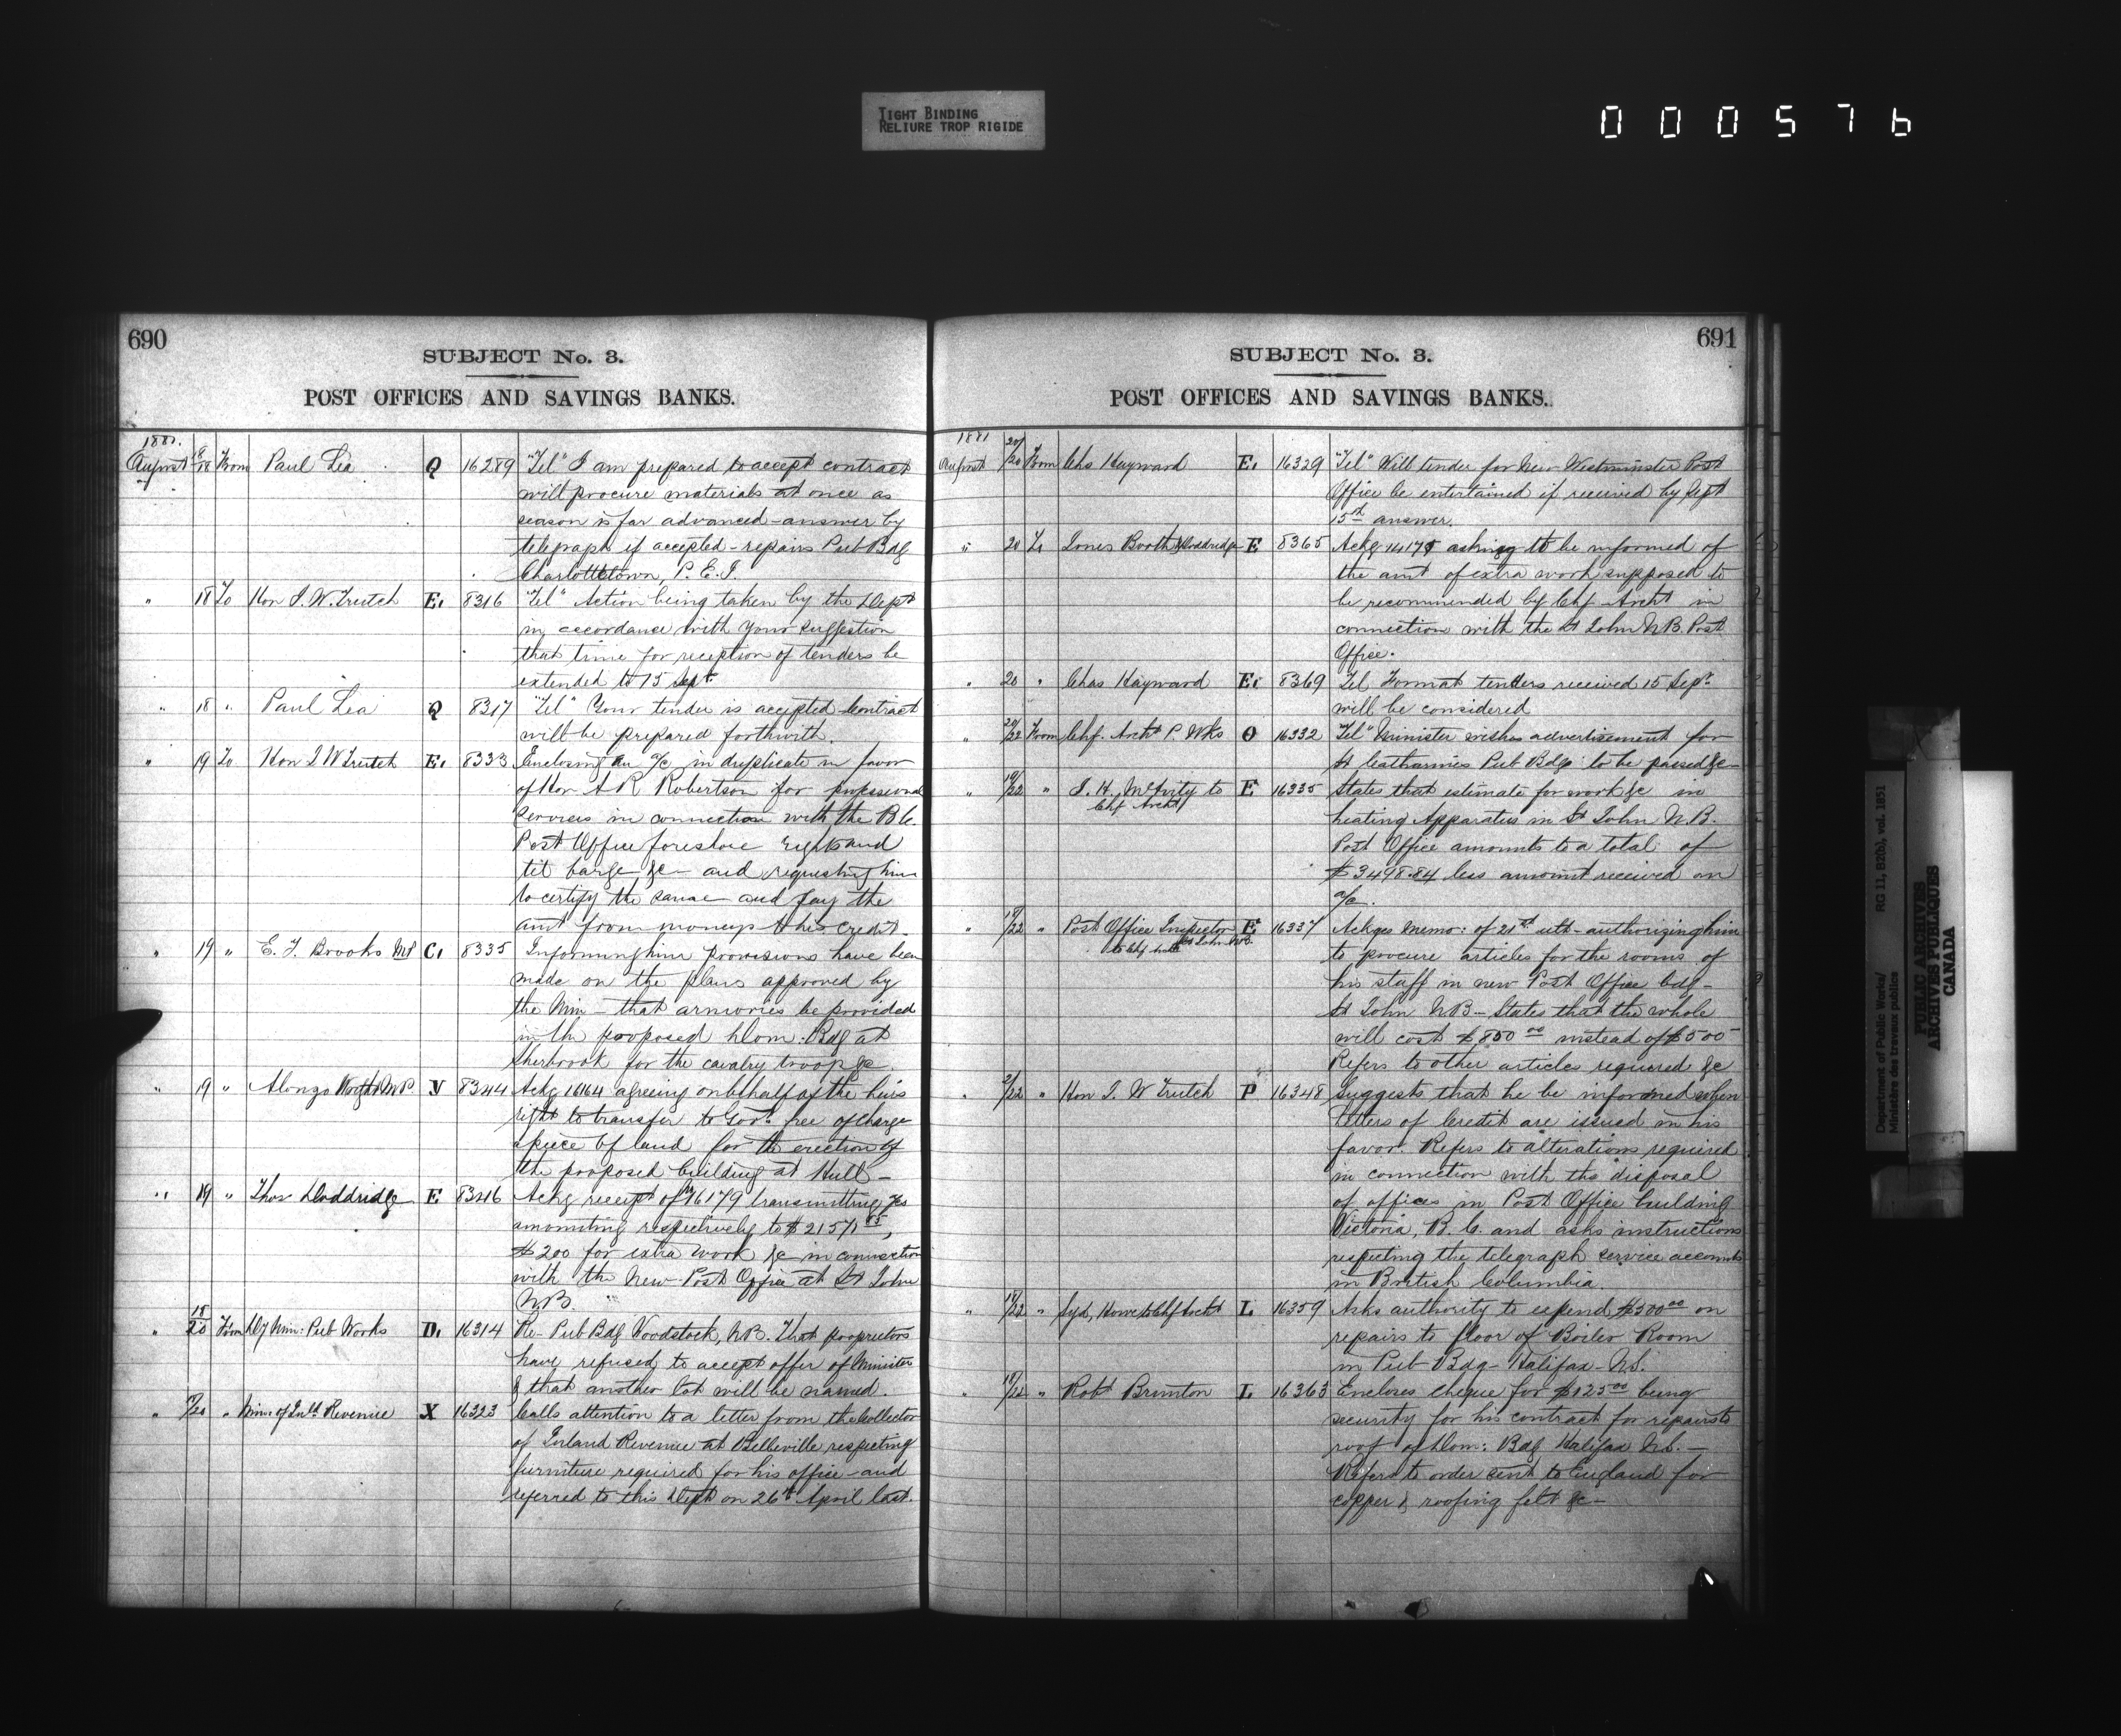 TIGHT BINDING
RELIURE TROP RIGIDE
000576
690
SUBJECT No. 3.
POST OFFICES AND SAVINGS BANKS.
1881.
August 8/18 From Paul Lea Q 16289 "Tel" I am prepared to accept contract
will procure materials at once as
season is far advanced - answer by
telegraph if accepted - repairs Pub Bdg
Charlottetown, P. E. I.
" 18 To Hon J. W. Trutch E. 8316 "Tel" Action being taken by the Dept
in accordance with your suggestion
that time for reception of tenders be
extended to 15 Sept.
" 18 " Paul Lea Q 8317 "Tel" Your tender is accepted Contract
will be prepared forthwith.
" 19 To Hon J W Trutch E. 8333 Enclosing an a/c in duplicate in favor
of Hon A R Robertson for professional
services in connection with the B. C.
Post Office foreshore rights and
tit barge &c and requesting him
to certify the same and pay the
amt from moneys to his credit.
" 19 " E. T. Brooks MP C. 8335 Informing him provisions have been
made on the plans approved by
the Min - that armories be provided
in the proposed Dom. Bdg at
Sherbrook for the cavalry troop &c.
" 19 " Alonzo Wright M.P. V 8344 Ackg 16164 agreeing on behalf of the heirs
right to transfer to Govt. free of charge
a piece of land for the erection of
the proposed building at Hull -
" 19 " Thos Doddridge E 8346 Ackg receipt of 16179 transmitting a/cs
amounting respectively to
$200 for extra work &c in connection
with the New Post Office at St John
N.B.
" 18/20 From Dy Min: Pub Works D. 16314 Re- Pub Bdg Woodstock, N.B. That proprietors
have refused to accept offer of Minister
& that another lot will be named.
" /20 " Min of Inld Revenue X 16323 Calls attention to a letter from the Collector
of Inland Revenue at Belleville respecting
furniture required for his office - and
referred to this Dept on 26th April last.
691
SUBJECT No. 3.
POST OFFICES AND SAVINGS BANKS.
1881
August 20/20 From Chs Hayward E. 16329 "Tel" Will tender for New Westminster Post
Office be entertained if received by Sept
15th answer.
" 20 To Jones Booth & Doddridge E 8365 Ackg asking to be informed of
the amt of extra work supposed to
be recommended by Chf Archt in
connection with the St John N.B. Post
Office.
" 20 " Chas Hayward E. 8369 Tel Format tenders received 15 Sept
will be considered
" 20/22 From Chf. Archt P. Wks O 16332 "Tel" Minister wishes advertisement for
St Catharines Pub Bdg to be passed &c -
" 19/22 " J. H. McAvity to E 16335 States that estimate for work &c in
Chf Archt
heating Apparatus in St John N.B.
Post Office amounts to a total of
$3498.84 less amount received on
a/c.
" 18/22 " Post Office Inspector E 16337 Ackges Memo: of 21st ult - authorizing him
St John N.B.
to Chf Archt
to procure articles for the rooms of
his staff in new Post Office bdg -
St John NB - States that the whole
will cost $850 00 instead of $500
Refers to other articles required &c
" 2/22 " Hon J. W Trutch P 16348 Suggests that he be informed when
letters of Credit are issued in his
favor. Refers to alterations required
in connection with the disposal
of offices in Post Office building
Victoria, B. C. and asks instructions
respecting the telegraph service accounts
in British Columbia.
" 18/22 " Syd, Howe to Chf Archt L 16359 Asks authority to expend $300 00 on
repairs to floor of Boiler Room
in Pub Bdg - Halifax - N.S.
" 18/22 " Robt Brunton L 16363 Encloses cheque for $125 00 being
security for his contract for repairs to
roof of Dom: Bdg Halifax N.S. -
Refers to order sent to England for
copper & roofing felt &c -
Department of Public Works/
Ministère des travaux publics
RG 11, B2(b), vol. 1851
PUBLIC ARCHIVES
ARCHIVES PUBLIQUES
CANADA